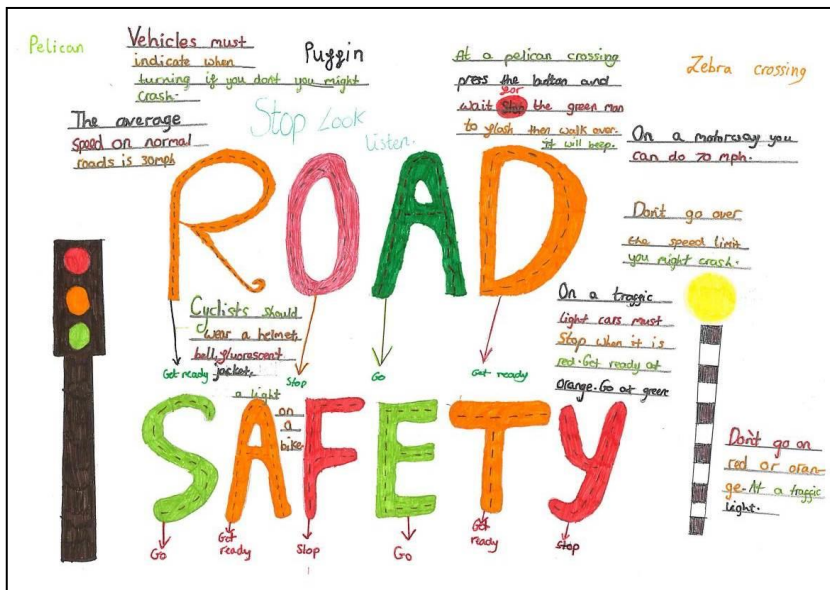 Pelican
Vehicles must
indicate when
turning if you don't you might
crash.
Puffin
At a pelican crossing
press the button and
wait for the green man
to flash then walk over.
it will beep.
Zebra crossing
The average
speed on normal
roads is 30mph
Stop Look
Listen.
On a motorway you
can do 70 mph.
ROAD
Don't go over
the speed limit
you might crash.
Cyclists should
wear a helmet,
bell, fluorescent
jacket,
a light
on
a
bike.
On a traffic
light cars must
Stop when it is
red. Get ready at
orange. Go at green
Get ready
Stop
Go
Get ready
SAFETY
Don't go on
red or oran-
ge. At a traffic
light.
Go
Get
ready
Stop
Go
Get
ready
Stop